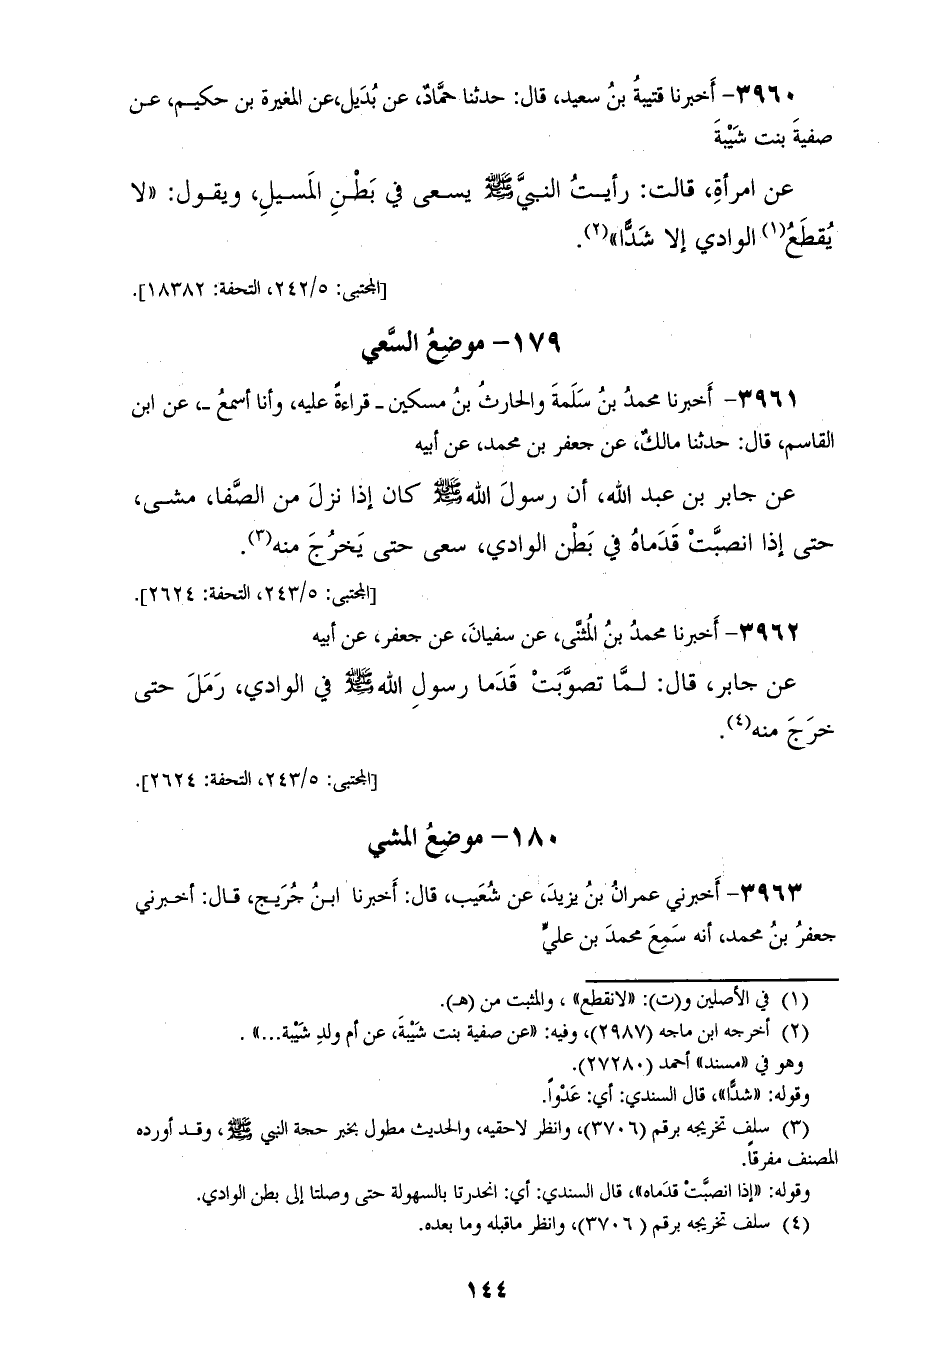 ٣٩٦٠- أَخبرنا قتيبةُ بنُ سعيد، قال: حدثنا حمَّادٌ، عن بُدَيل،عن المغيرة بن حكيـم، عـن
صفيةَ بنت شَيْبةَ
عن امرأةٍ، قالت: رأيـتُ النـبيَّ ﷺ يسـعى في بَطْـنِ المَسـيلِ، ويقـول: «لا
يُقطَعُ(١) الوادي إلا شَدًّا»(٢).
[المجتبى: ٢٤٢/٥، التحفة: ١٨٣٨٢].
١٧٩- موضِعُ السَّعي
٣٩٦١- أَخبرنا محمدُ بنُ سَلَمةَ والحارثُ بنُ مسكين ـ قراءةً عليه، وأنا أسمعُ ـ، عن ابن
القاسم، قال: حدثنا مالكٌ، عن جعفر بن محمد، عن أبيه
عن جابر بن عبد الله، أن رسولَ الله ﷺ كان إذا نزلَ من الصَّفا، مشـى،
حتى إذا انصبَّتْ قَدَماهُ في بَطْن الوادي، سعى حتى يَخرُجَ منه(٣).
[المجتبى: ٢٤٣/٥، التحفة: ٢٦٢٤].
٣٩٦٢- أَخبرنا محمدُ بنُ المُثنَّى، عن سفيانَ، عن جعفر، عن أبيه
عن جابر، قال: لـمَّا تصوَّبَتْ قَدَما رسولِ الله ﷺ في الوادي، رَمَلَ حتى
خرَجَ منه(٤).
[المجتبى: ٢٤٣/٥، التحفة: ٢٦٢٤].
١٨٠- موضِعُ المشي
٣٩٦٣- أَخبرني عمرانُ بنُ يزيدَ، عن شُعَيب، قال: أَخبرنا ابـنُ جُرَيـج، قـال: أخـبرني
جعفرُ بنُ محمد، أنه سَمِعَ محمدَ بن عليٍّ
(١) في الأصلين و(ت): «لانقطع» ، والمثبت من (هـ).
(٢) أخرجه ابن ماجه (٢٩٨٧)، وفيه: «عن صفية بنت شَيْبةَ، عن أم ولدِ شَيْبة...» .
وهو في «مسند» أحمد (٢٧٢٨٠).
وقوله: «شدًّا»، قال السندي: أي: عَدْواً.
(٣) سلف تخريجه برقم (٣٧٠٦)، وانظر لاحقيه، والحديث مطول بخبر حجة النبي ﷺ، وقـد أورده
المصنف مفرقاً.
وقوله: «إذا انصبَّتْ قدَماه»، قال السندي: أي: انحدرتا بالسهولة حتى وصلتا إلى بطن الوادي.
(٤) سلف تخريجه برقم ( ٣٧٠٦)، وانظر ماقبله وما بعده.
١٤٤